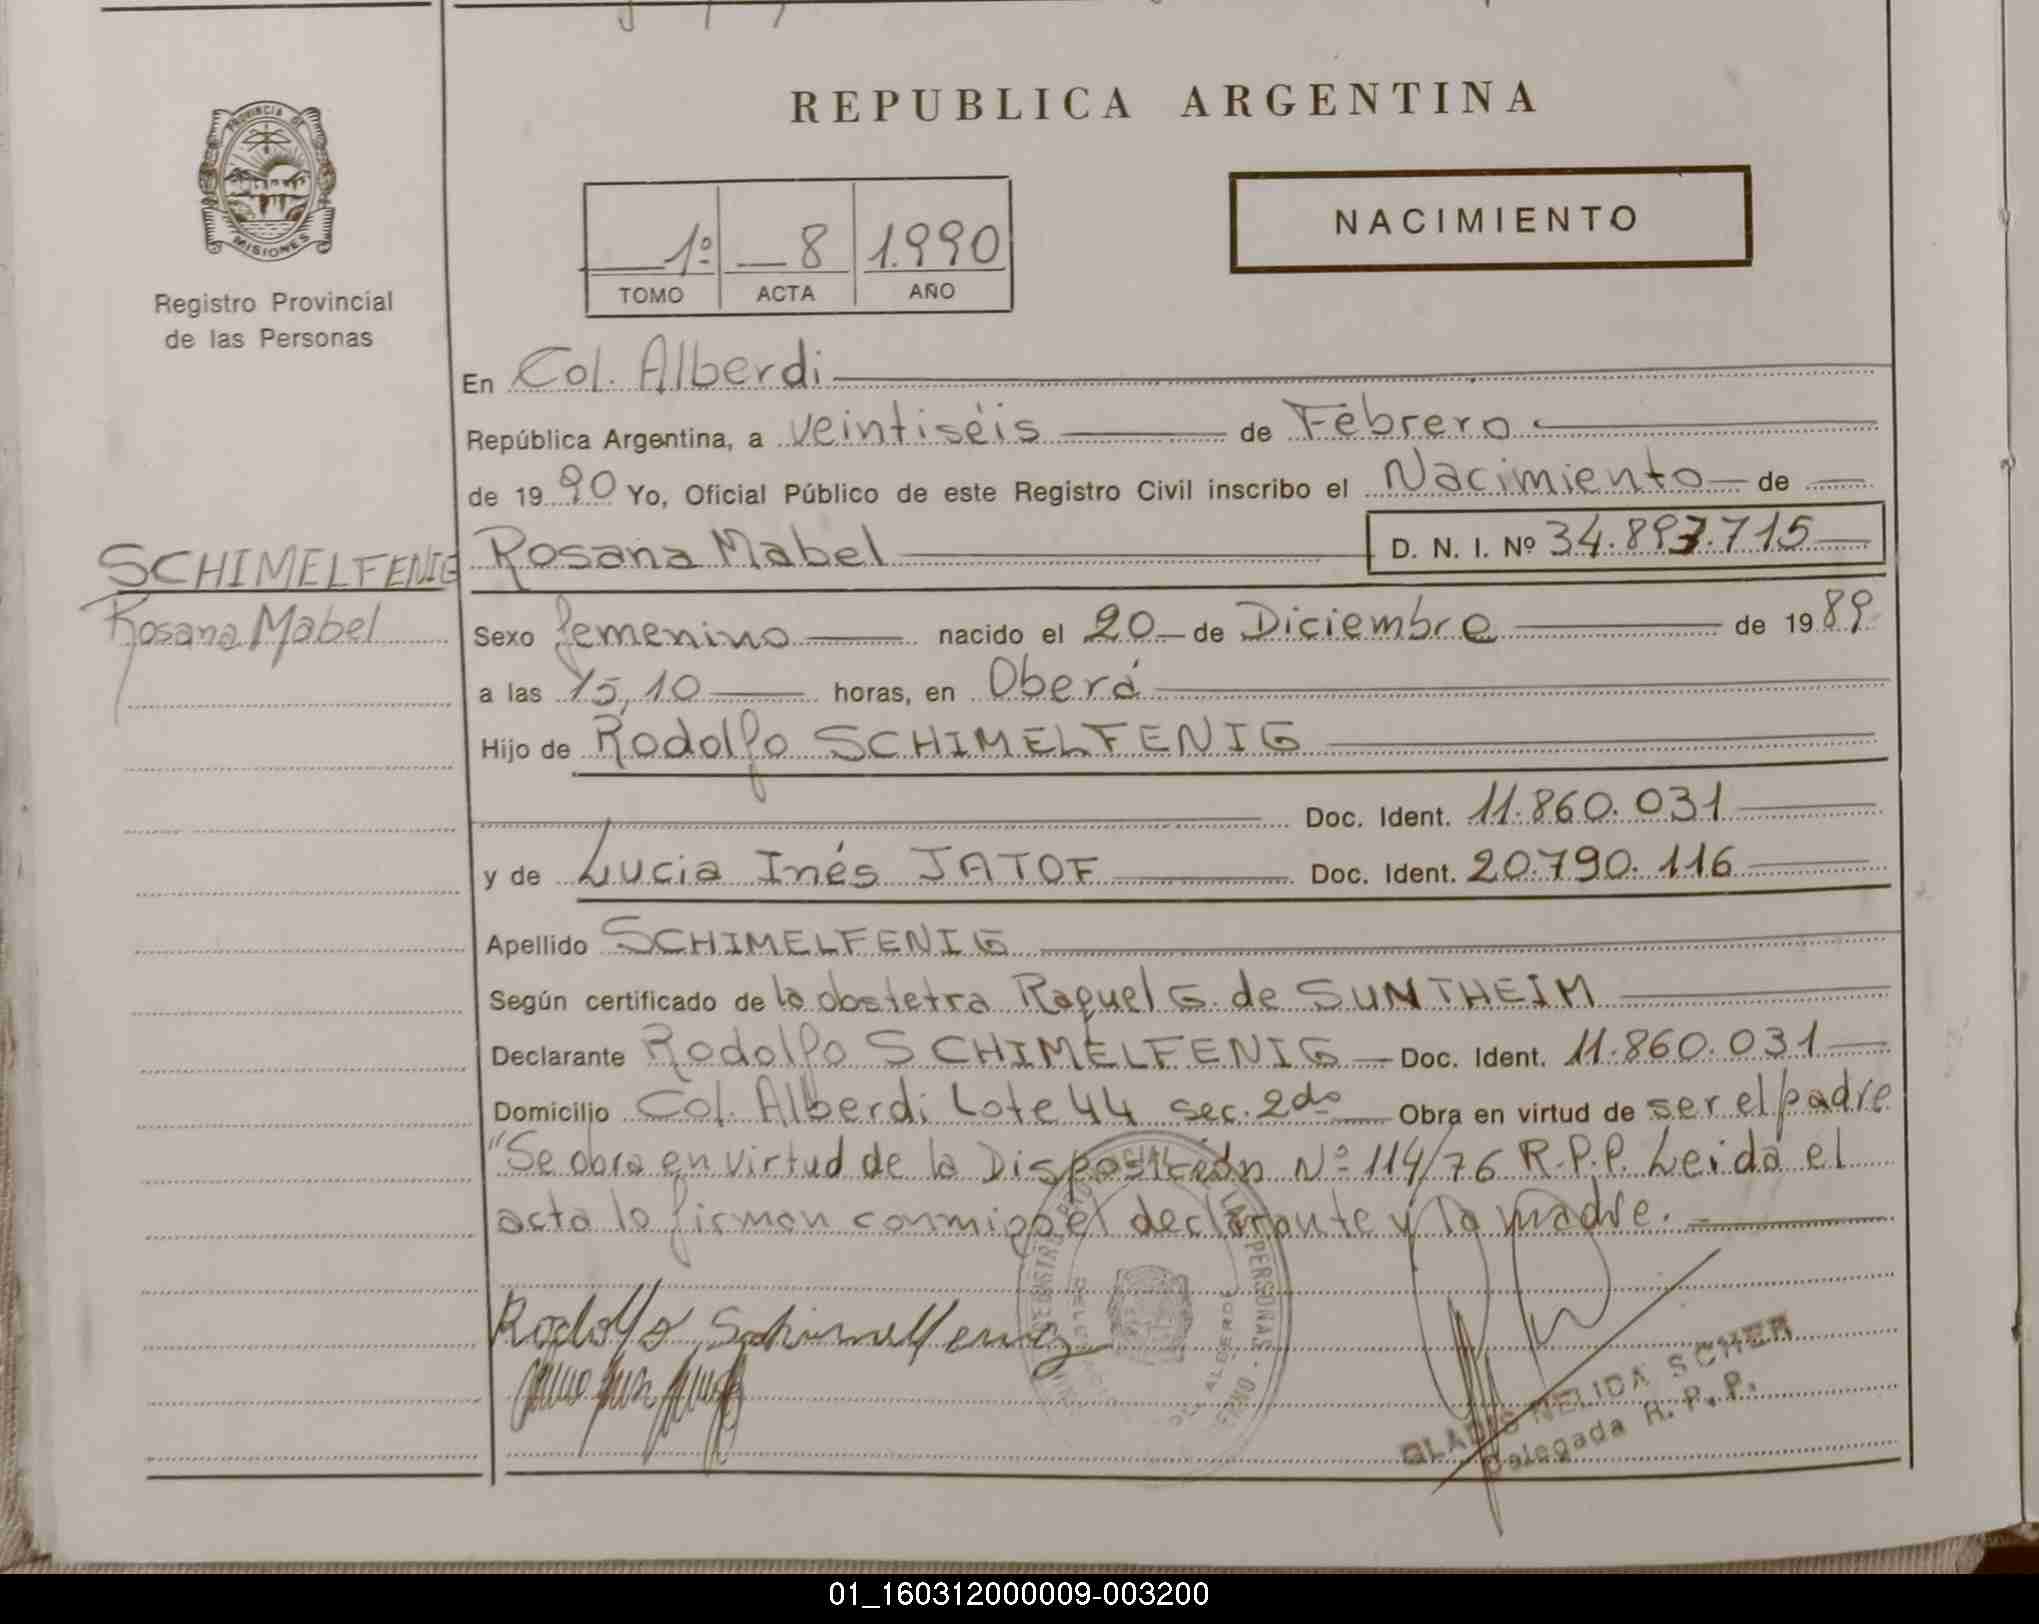 REPUBLICA ARGENTINA
PROVINCIA DE
MISIONES
Registro Provincial
de las Personas
1º 8 1.990
TOMO ACTA AÑO
NACIMIENTO
En Col. Alberdi
República Argentina, a veintiséis de Febrero
de 1990 Yo, Oficial Público de este Registro Civil inscribo el Nacimiento de
SCHIMELFENIG
Rosana Mabel
Rosana Mabel D. N. I. Nº 34.897.715
Sexo femenino nacido el 20 de Diciembre de 1989
a las 15,10 horas, en Oberá
Hijo de Rodolfo SCHIMELFENIG
Doc. Ident. 11.860.031
y de Lucia Inés JATOF Doc. Ident. 20.790.116
Apellido SCHIMELFENIG
Según certificado de la obstetra Raquel G. de SUNTHEIM
Declarante Rodolfo SCHIMELFENIG Doc. Ident. 11.860.031
Domicilio Col. Alberdi Lote 44 sec. 2da Obra en virtud de ser el padre
"Se obra en virtud de la Disposición Nº 114/76 R.P.P. Leida el
acta lo firman conmigo el declarante y la madre.
Rodolfo Schimelfenig
GLADIS NELIDA SCHER
Delegada R. P. P.
01_160312000009-003200